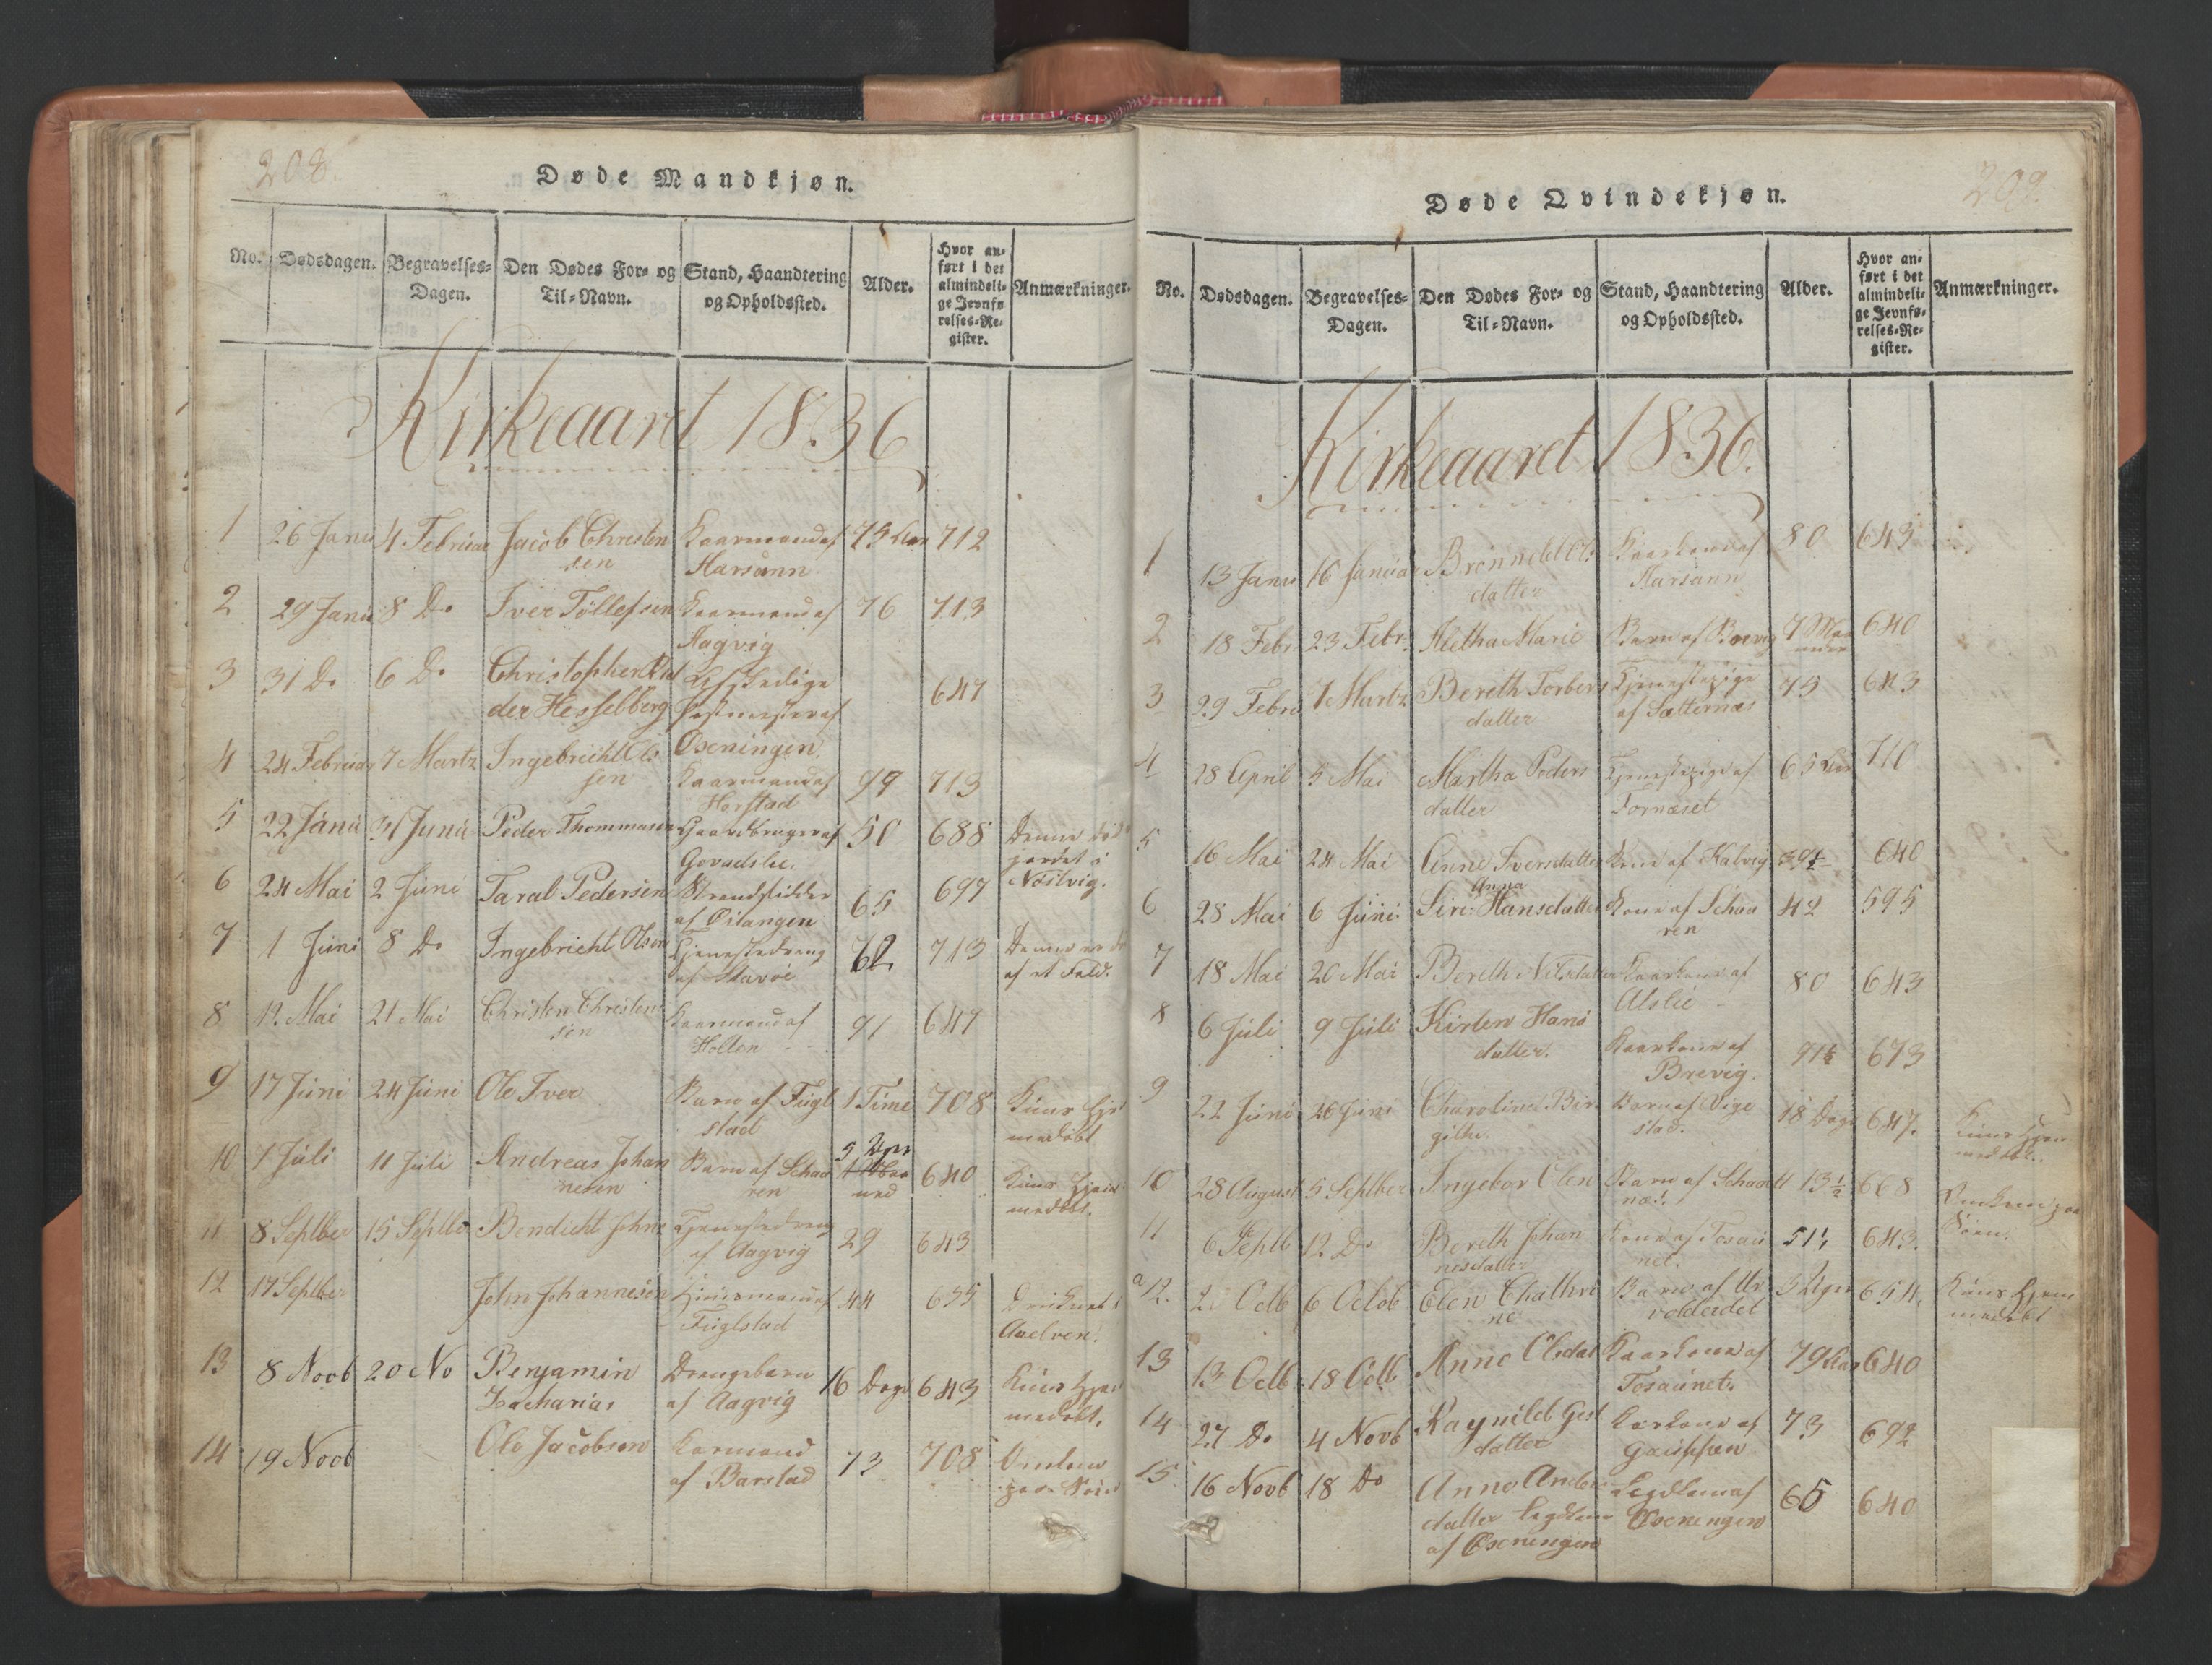 208.
Døde Mandkjøn.
No. Dødsdagen. Begravelses-Dagen. Den Dødes For- og Til-Navn. Stand, Haandtering og Opholdssted. Alder. Hvor anført i det almindelige Jevnførelses-Register. Anmærkninger.
Kirkeaaret 1836
1 26 Janu 4 Februar Jacob Christensen Kaarmand af Harsann 75 Aar 712
2 29 Janu 8 Do Iver Tollefsen Kaarmand af Aagvig 76 713
3 31 Do 6 Do Christopher der Hesselberg Afskedige Postmester af Oseningen 647
4 24 Februar 7 Martz Ingebricht Olsen Kaarmand af Horstad 713
5 22 Janu 31 Peder Thommasen Gaardbruger af 50 688 Denne
6 24 Mai 2 Juni Taral Pedersen Strandsidder af 65 697
7 1 Juni 8 Do Ingebricht Olsen Tjenestedreng af 62 713 Denne af et Fald.
8 12 Mai 21 Mai Christen Christensen Kaarmand af Holten 91 647
9 17 Juni 24 Juni Ole Iver Barn af Fuglstad 1 Time 708 Kuns Hjemmedøbt
10 1 Juli 11 Juli Andreas Johannesen Barn af Schaaren 5 Uger 640 Kuns Hjemmedøbt.
11 8 Septber 15 Septbr Bendicht Johns Tjenestedreng af Aagvig 29 643
12 17 Septber John Johannesen Huusmand af Fuglstad 44 655 Druknet i Aaelven.
13 8 Novb 20 No Benjamin Zacharias Drengebarn af Aagvig 16 Dage 643 Kuns Hjemmedøbt.
14 19 Novb Ole Jacobsen Karmand af Barstad 73 708 Omkom paa Søen
209.
Døde Qvindekjøn.
No. Dødsdagen. Begravelses-Dagen. Den Dødes For- og Til-Navn. Stand, Haandtering og Opholdssted. Alder. Hvor anført i det almindelige Jevnførelses-Register. Anmærkninger.
Kirkeaaret 1836.
1 13 Janu 16 Januar datter Kaarkone af Harsann 80 643
2 18 Febr 23 Febr. Aletha Marie Barn af 7 Maaneder 640
3 29 Febru 7 Martz Bereth Torbers datter Tjenestepige af Satternæs 75 643
4 28 April 5 Mai Martha Peders datter Tjenestepige af Fornæset 65 Aar 710
5 16 Mai 24 Mai Anne Iversdatter Kone af Kalvig 640
6 28 Mai 6 Juni Siri Anna Hansdatter Kone af Schaaren 42 595
7 18 Mai 20 Mai Bereth Nilsdatter Kaarkone af 80 643
8 6 Juli 9 Juli Kirsten Hans datter. Kaarkone af Brevig. 91½ 673
9 22 Juni 26 Juni Charoline Birgithe. Barn af Vigestad. 18 Dage 647. Kuns Hjemmedøbt.
10 28 August 5 Septber Ingebor Olen Barn af 13½ 668 Omkom paa Søen.
11 6 Septb 12 Do Bereth Johannesdatter Kone af Tosaunet. 643.
12. 2 Octb 6 Octob Elen Chathrine Barn af 3 Uger 654. Kuns Hjemmedøbt
13 13 Octb 18 Octb Anne Olsdat Kaarkone af Tosaunet. 79 Aar 640
14 27 Do 4 Novb Ragnild datter Karkone af 73 692
15 16 Novb 18 Do Anne Anders datter Legdlem af Oseningen Legdlem af Oseningen 65 640